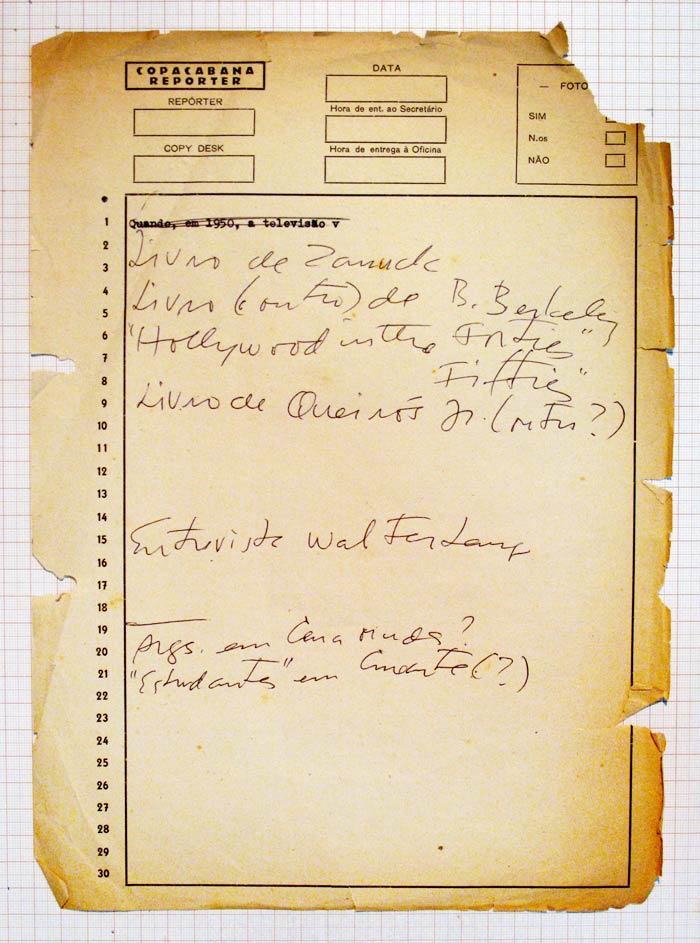 COPACABANA
REPORTER
REPÓRTER
COPY DESK
DATA
Hora de ent. ao Secretário
Hora de entrega à Oficina
— FOTO
SIM
N.os
NÃO
1
2
3
4
5
6
7
8
9
10
11
12
13
14
15
16
17
18
19
20
21
22
23
24
25
26
27
28
29
30
Quando, em 1950, a televisão v
Livro de Zanuck
Livro (outro) de B. Berkeley
"Hollywood in the Forties"
Fifties"
Livro de Queirós Jr. (outro?)
Entrevista Walter Lang
Args. em Cena Muda?
"Estudantes" em Cinearte (?)